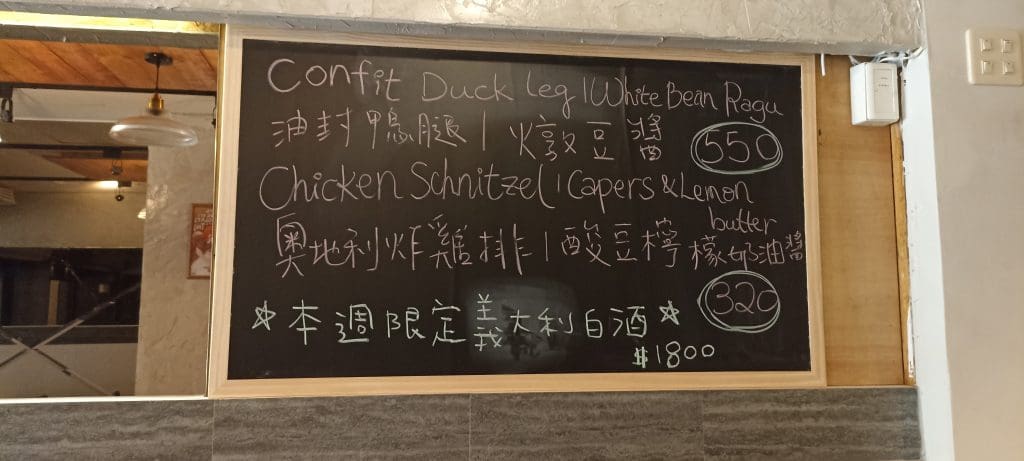 Confit Duck Leg | White Bean Ragu
油封鴨腿 | 燉豆醬
550
Chicken Schnitzel | Capers & Lemon
butter
奧地利炸雞排 | 酸豆檸檬奶油醬
320
☆本週限定義大利白酒☆
$1800